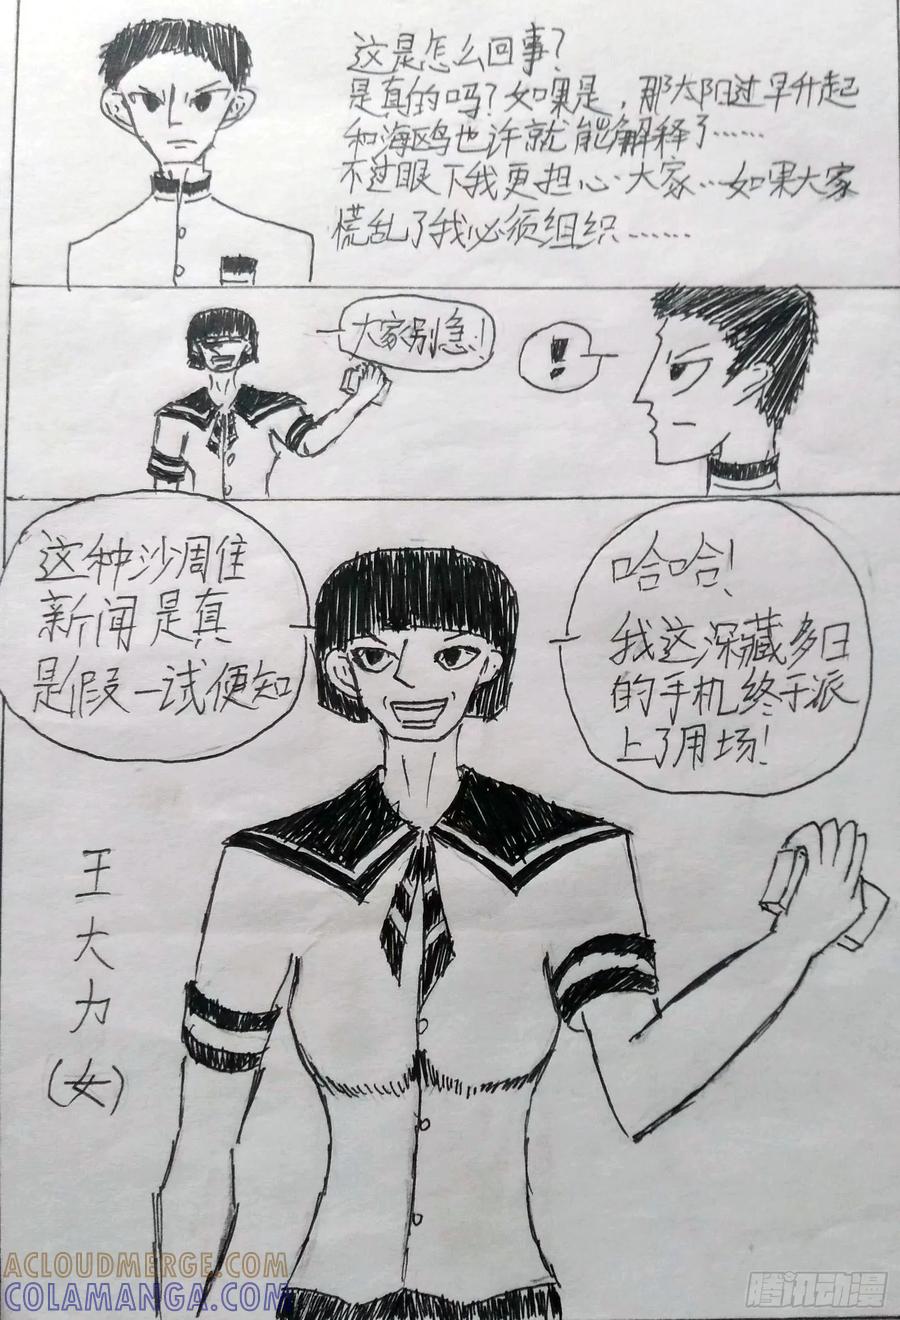 这是怎么回事？
是真的吗？如果是，那太阳过早升起
和海鸥也许就能解释了……
不过眼下我更担心大家…如果大家
慌乱了我必须组织……
大家别急！
！
这种沙周住
新闻是真
是假一试便知
哈哈！
我这深藏多日
的手机终于派
上了用场！
王大力（女）
ACLOUDMERGE.COM
COLAMANGA.COM
腾讯动漫